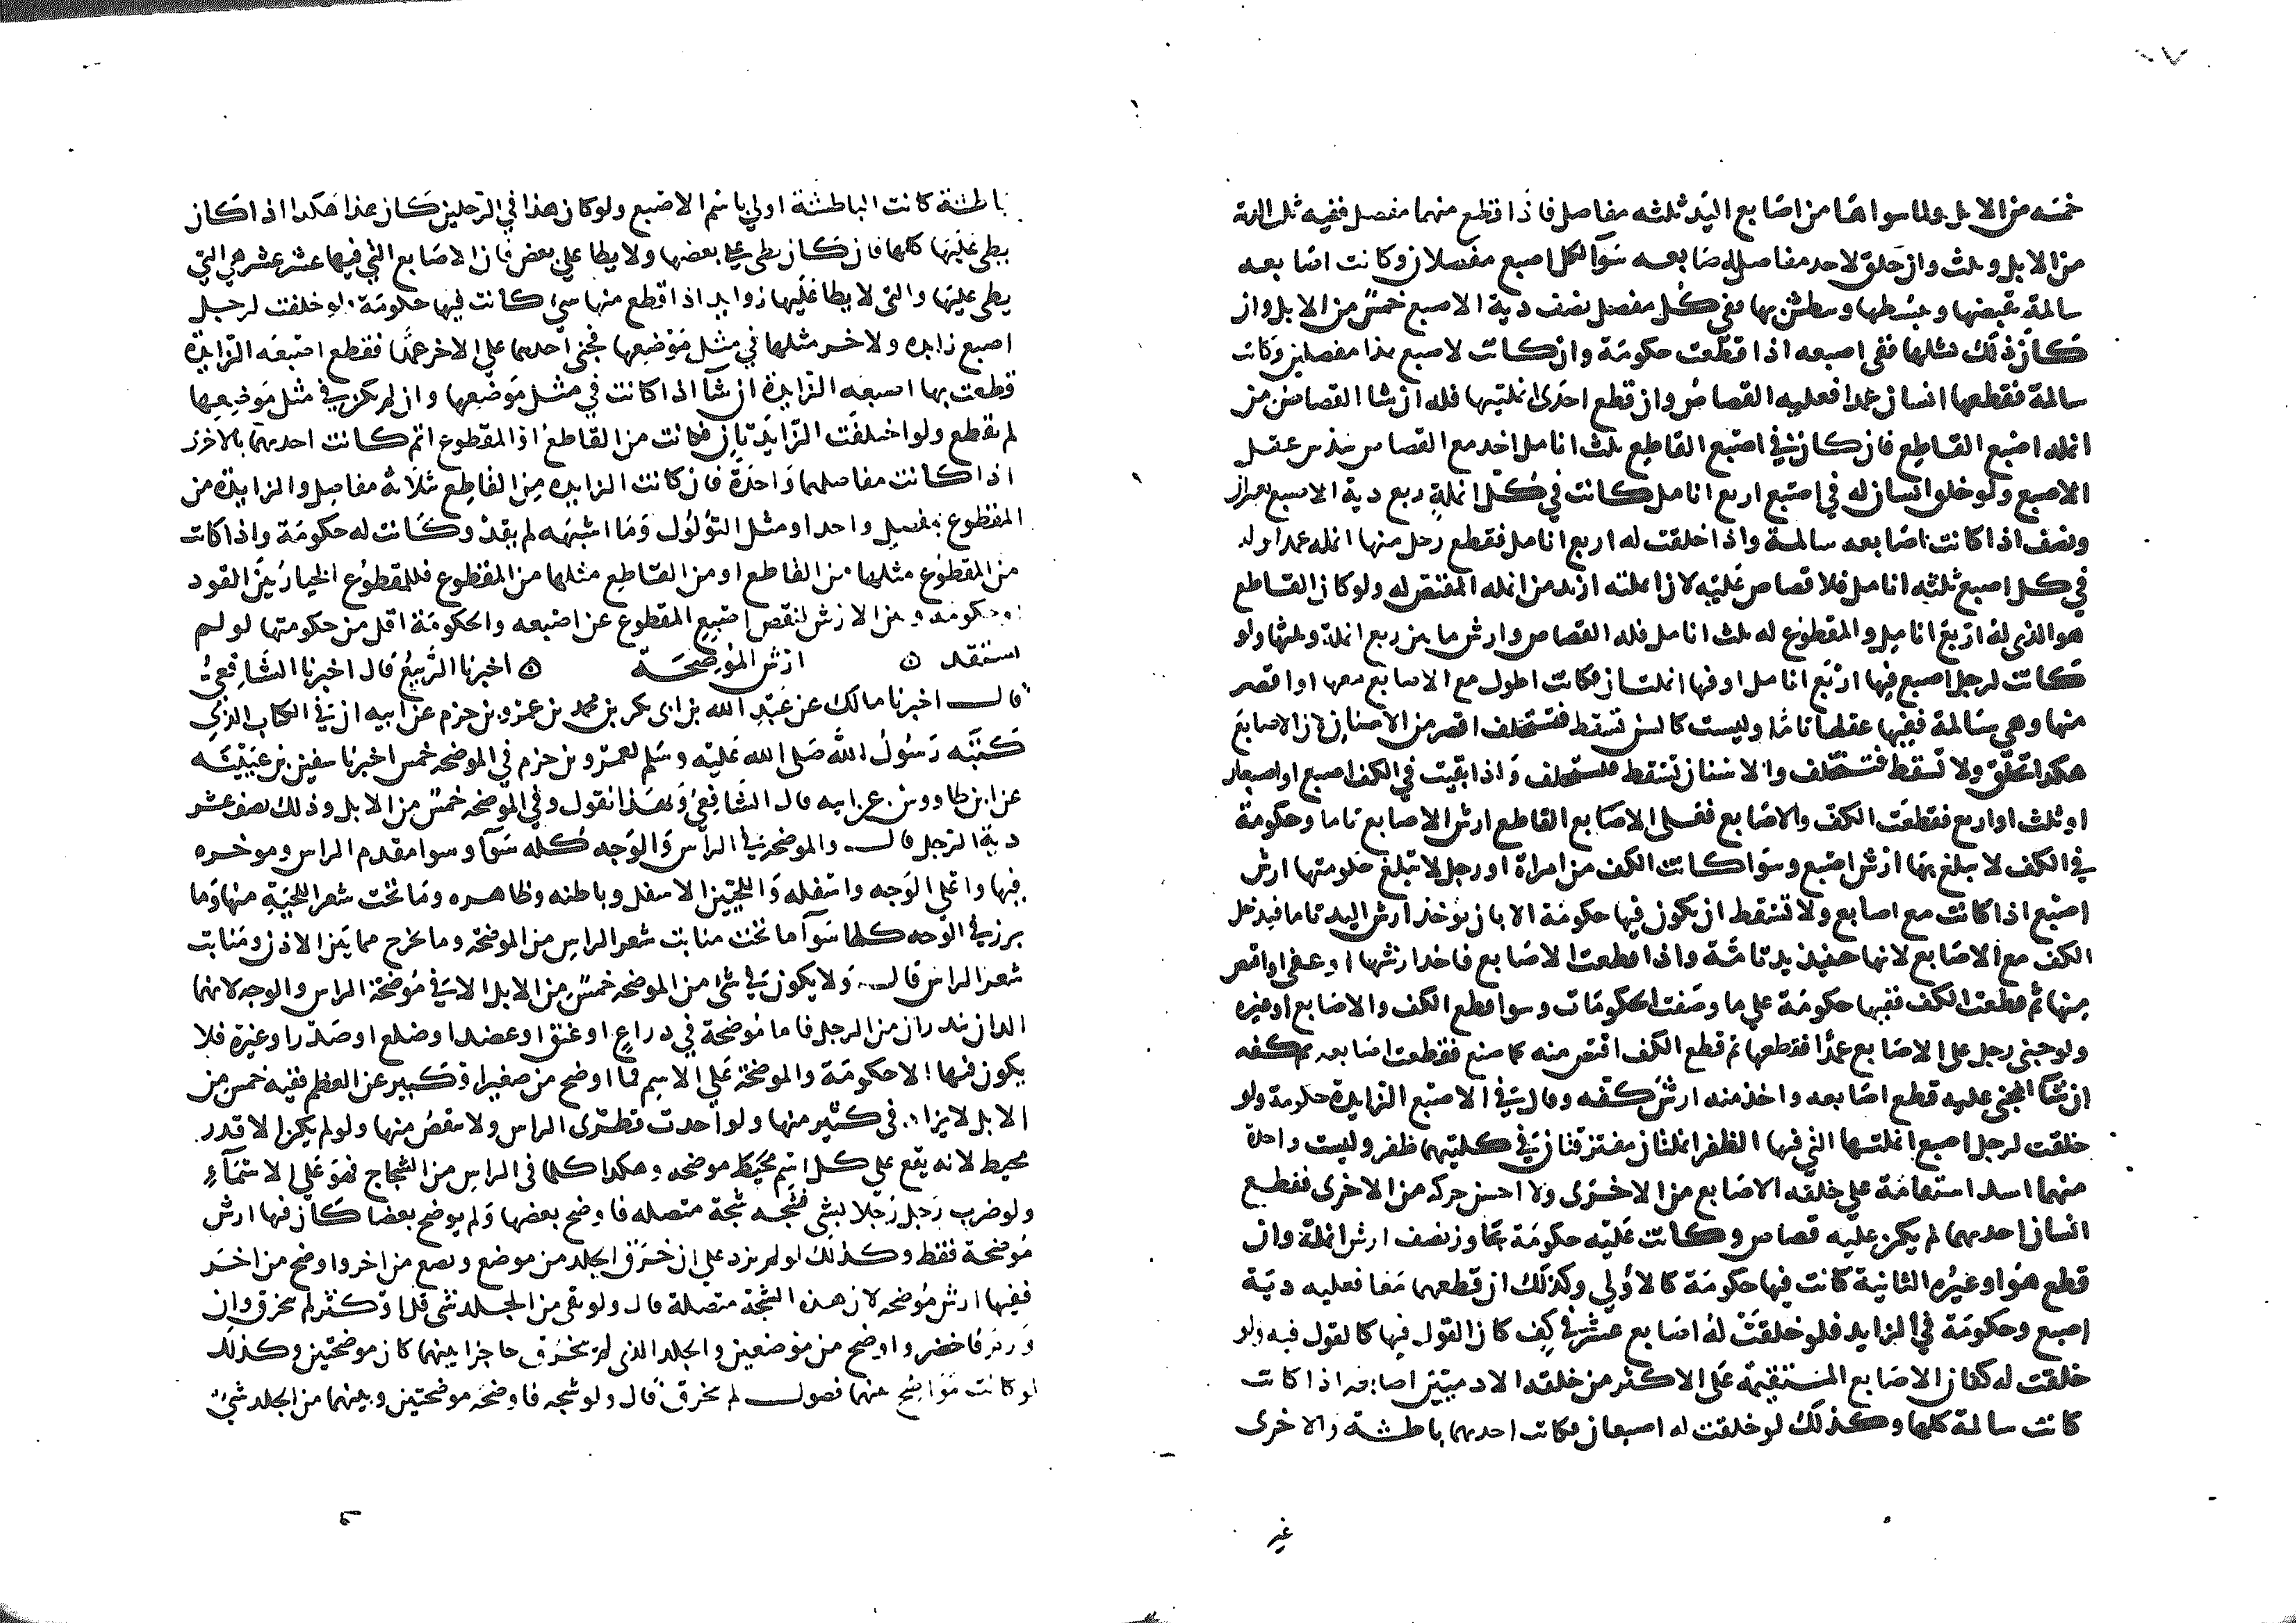 خمسه من الابل ولما سواها من اصابع اليد ثلثه مفاصل فاذا قطع منهما مفصل ففيه ثلث الدية
من الابل وثلث وان خلق لاحد مفاصل اصابعه سوا لكل اصبع مفصلان وكانت اصابعه
سالمة يقبضها ويبسطها ويبطش بها ففي كل مفصل نصف دية الاصبع خمس من الابل وان
كان ذلك شللها ففي اصبعه اذا قطعت حكومة وان كانت لاصبع هذا مفصلين وكانت
سالمة فقطعها انسان عمدا فعليه القصاص وان قطع احدى انملتيها فله ان شا القصاص من
انمله اصبع القاطع فان كان في اصبع القاطع ثلث انامل اخد مع القصاص سدس عقل
الاصبع ولو خلق انسان له في اصبع اربع انامل كانت في كل انملة ربع دية الاصبع بعيران
ونصف اذا كانت اصابعه سالمة واذا خلقت له اربع انامل فقطع رجل منها انمله عمدا وله
في كل اصبع ثلثه انامل فلا قصاص عليه لان انملته ازيد من انمله المقتص له ولو كان القاطع
هو الذي له اربع انامل والمقطوع له ثلث انامل فله القصاص وارش ما بين ربع انملة وثلثها ولو
كانت لرجل اصبع فيها اربع انامل او فيها انملتان فكانت اطول مع الاصابع معها او اقصر
منها وهي سالمة ففيها عقلها تاما وليست كالسن تسقط فتستخلف اقصر من الاسنان لان الاصابع
هكذا تخلق ولا تسقط فتستخلف والاسنان تسقط فتستخلف واذا بقيت في الكف اصبع او اصبعان
او ثلث او اربع فقطعت الكف والاصابع فعلى الاصابع القاطع ارش الاصابع تاما وحكومة
في الكف لا يبلغ بها ارش اصبع وسوا كانت الكف من امراة او رجل لا تبلغ حكومتها ارش
اصبع اذا كانت مع اصابع ولا تسقط ان يكون فيها حكومة الا بان يوخذ ارش اليد تاما فيدخل
الكف مع الاصابع لانها حينيذ يد تامة واذا قطعت الاصابع فاخذ ارشها او عفى او اقتص
منها ثم قطعت الكف ففيها حكومة على ما وصفت الحكومات وسوا قطع الكف والاصابع او غيره
ولو جنى رجل على الاصابع عمدا فقطعها ثم قطع الكف اقتص منه كما صنع فقطعت اصابعه ثم كفه
ان شا المجني عليه قطع اصابعه واخذ منه ارش كفه وقال في الاصبع الزايدة حكومة ولو
خلقت لرجل اصبع انملتها التي فيها الظفر انملتان مفترقتان في كلتيهما ظفر وليست واحدة
منهما اسد استقامة على خلقه الاصابع من الاخرى ولا احسن حركه من الاخرى فقطع
انسان احدهما لم يكن عليه قصاص وكانت عليه حكومة تجاوز نصف ارش انملة وان
قطع هو او غيره الثانية كانت فيها حكومة كالاولى وكذلك ان قطعهما معا فعليه دية
اصبع وحكومة في الزايد فلو خلقت له اصابع عشر في كف كان القول فيها كالقول فيه ولو
خلقت له كفان الاصابع المستقيمة على الاكثر من خلقه الادميين اصابعه اذا كانت
كانت سالمة كلها وكذلك لو خلقت له اصبعان فكانت احدهما باطشة والاخرى
غير
باطشة كانت الباطشة اولى باسم الاصبع ولو كان هذا في الرجلين كان هذا هكذا اذا كان
يطى عليها كلها فان كان يطى على بعضها ولا يطا على بعض فان الاصابع التي فيها عشر عشر هي التي
يطى عليها والتي لا يطا عليها زوايد اذا قطع منها شي كانت فيها حكومة ولو خلقت لرجل
اصبع زايده ولاخر مثلها في مثل موضعها فجنى احدهما على الاخر عمدا فقطع اصبعه الزايدة
قطعت بها اصبعه الزايدة ان شا اذا كانت في مثل موضعها وان لم تكن في مثل موضعها
لم تقطع ولو اختلفت الزايدتان فكانت من القاطع او المقطوع اتم كانت احدهما بالاخرى
اذا كانت مفاصلهما واحدة فان كانت الزايده من القاطع ثلاثة مفاصل والزايدة من
المقطوع مفصل واحد او مثل الثؤلول وما اشبهه لم يقد وكانت له حكومة واذا كانت
من المقطوع مثلها من القاطع او من القاطع مثلها من المقطوع فللمقطوع الخيار بين القود
وحكومه ومن الارش لنقص اصبع المقطوع عن اصبعه والحكومة اقل من حكومتها لو لم
استقد ۞ ارش الموضحة ۞ اخبرنا الربيع قال اخبرنا الشافعي
قال اخبرنا مالك عن عبد الله بن ابي بكر بن محمد بن عمرو بن حزم عن ابيه ان في الكتاب الذي
كتبه رسول الله صلى الله عليه وسلم لعمرو بن حزم في الموضحه خمس اخبرنا سفين بن عيينه
عن ابن طاووس عن ابيه قال الشافعي وبهذا نقول وفي الموضحه خمس من الابل وذلك نصف عشر
دية الرجل قال والموضحة في الراس والوجه كله سوا وسوا مقدم الراس وموخره
فيها واعلى الوجه واسفله واللحيين الاسفل وباطنه وظاهره وما تحت شعر اللحية منها وما
برز في الوجه كلها سوا ما تحت منابت شعر الراس من الموضحة وما يخرج مما بين الاذن ومنابت
شعر الراس قال ولا يكون في شي من الموضحه خمس من الابل الا في موضحة الراس والوجه لانهما
اللذان يبدران من الرجل فاما موضحة في دراع او عنق او عضد او ضلع او صدر او غيره فلا
يكون فيها الا حكومة والموضحة على الاسم فما اوضح من صغير او كبير عن العظم ففيه خمس من
الابل لا يزاد في كثير منها ولو اخدت قطري الراس ولا ينقص منها ولو لم يكن الا قدر
محيط لانه يقع على كل اسم محيط موضحه وهكذا كلما في الراس من الشجاج فهو على الاسماء
ولو ضرب رجل رجلا بشي فشجه شجة متصله فاوضح بعضها ولم يوضح بعضا كان فيها ارش
موضحة فقط وكذلك لو لم يزد على ان خرق الجلد من موضع وبضع من اخر واوضح من اخر
ففيها ارش موضحه لان هذه الشجة متصلة قال ولو بقى من الجلد شي قل او كثر لم يخرق وان
ورم فاخضر واوضح من موضعين والجلد الذي لم يخرق حاجزا بينهما كان موضحتين وكذلك
لو كانت مواضح منهما فصول لم يخرق قال ولو شجه فاوضحه موضحتين وبينهما من الجلد شي